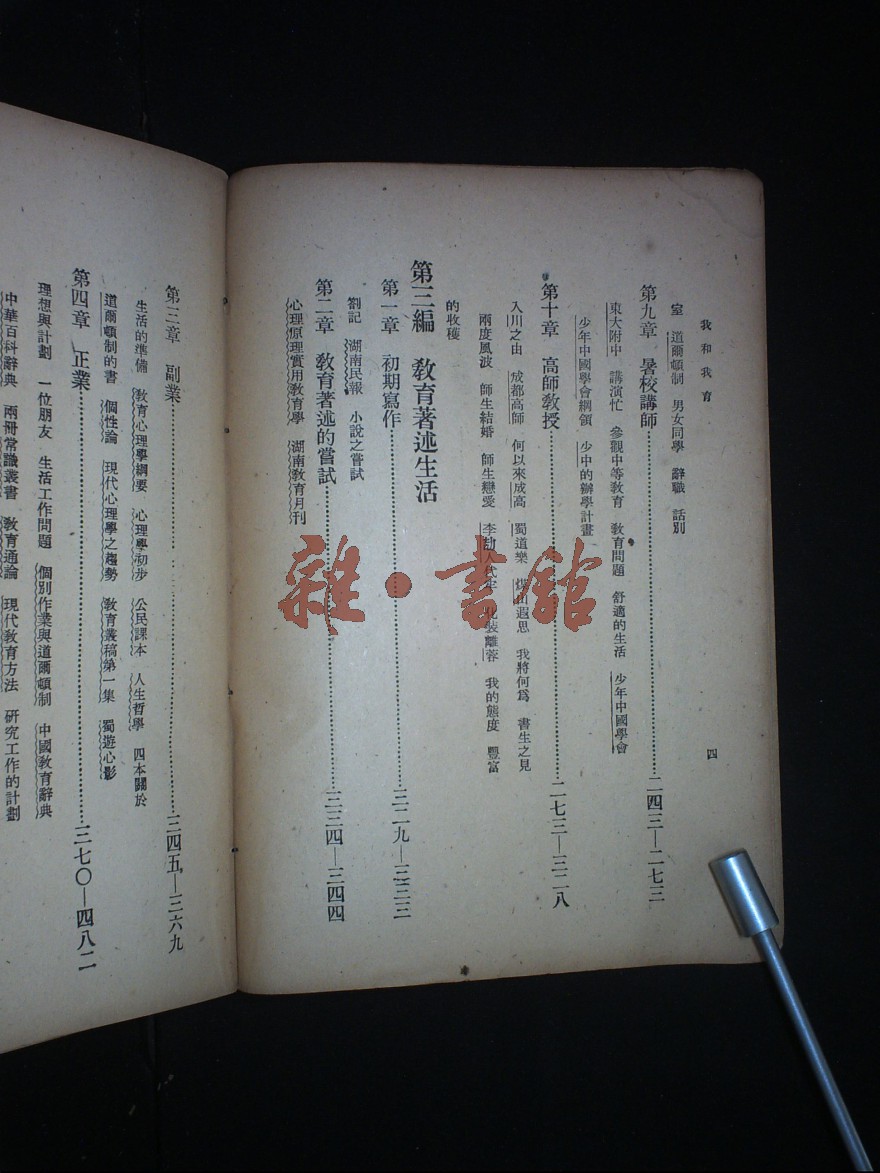 我和我育
四
室　道爾頓制　男女同學　辭職　話別
第九章　暑校講師……二四三—二七三
東大附中　講演忙　參觀中等教育　教育問題　舒適的生活　少年中國學會
少年中國學會綱領　少中的辦學計畫
第十章　高師教授……二七三—三二八
入川之由　成都高師　何以來成高　蜀道樂　煤山遐思　我將何爲　書生之見
兩度風波　師生結婚　師生戀愛　李劼人代牢　化裝離蓉　我的態度　豐富
的收穫
第三編　教育著述生活
第一章　初期寫作……三二九—三三三
劄記　湖南民報　小說之嘗試
第二章　教育著述的嘗試……三三四—三四四
心理原理實用教育學　湖南教育月刊
第三章　副業……三四五—三六九
生活的準備　教育心理學綱要　心理學初步　公民課本　人生哲學　四本關於
道爾頓制的書　個性論　現代心理學之趨勢　教育叢稿第一集　蜀遊心影
第四章　正業……三七〇—四八二
理想與計劃　一位朋友　生活工作問題　個別作業與道爾頓制　中國教育辭典
中華百科辭典　兩冊常識叢書　教育通論　現代教育方法　研究工作的計劃
雜·書館